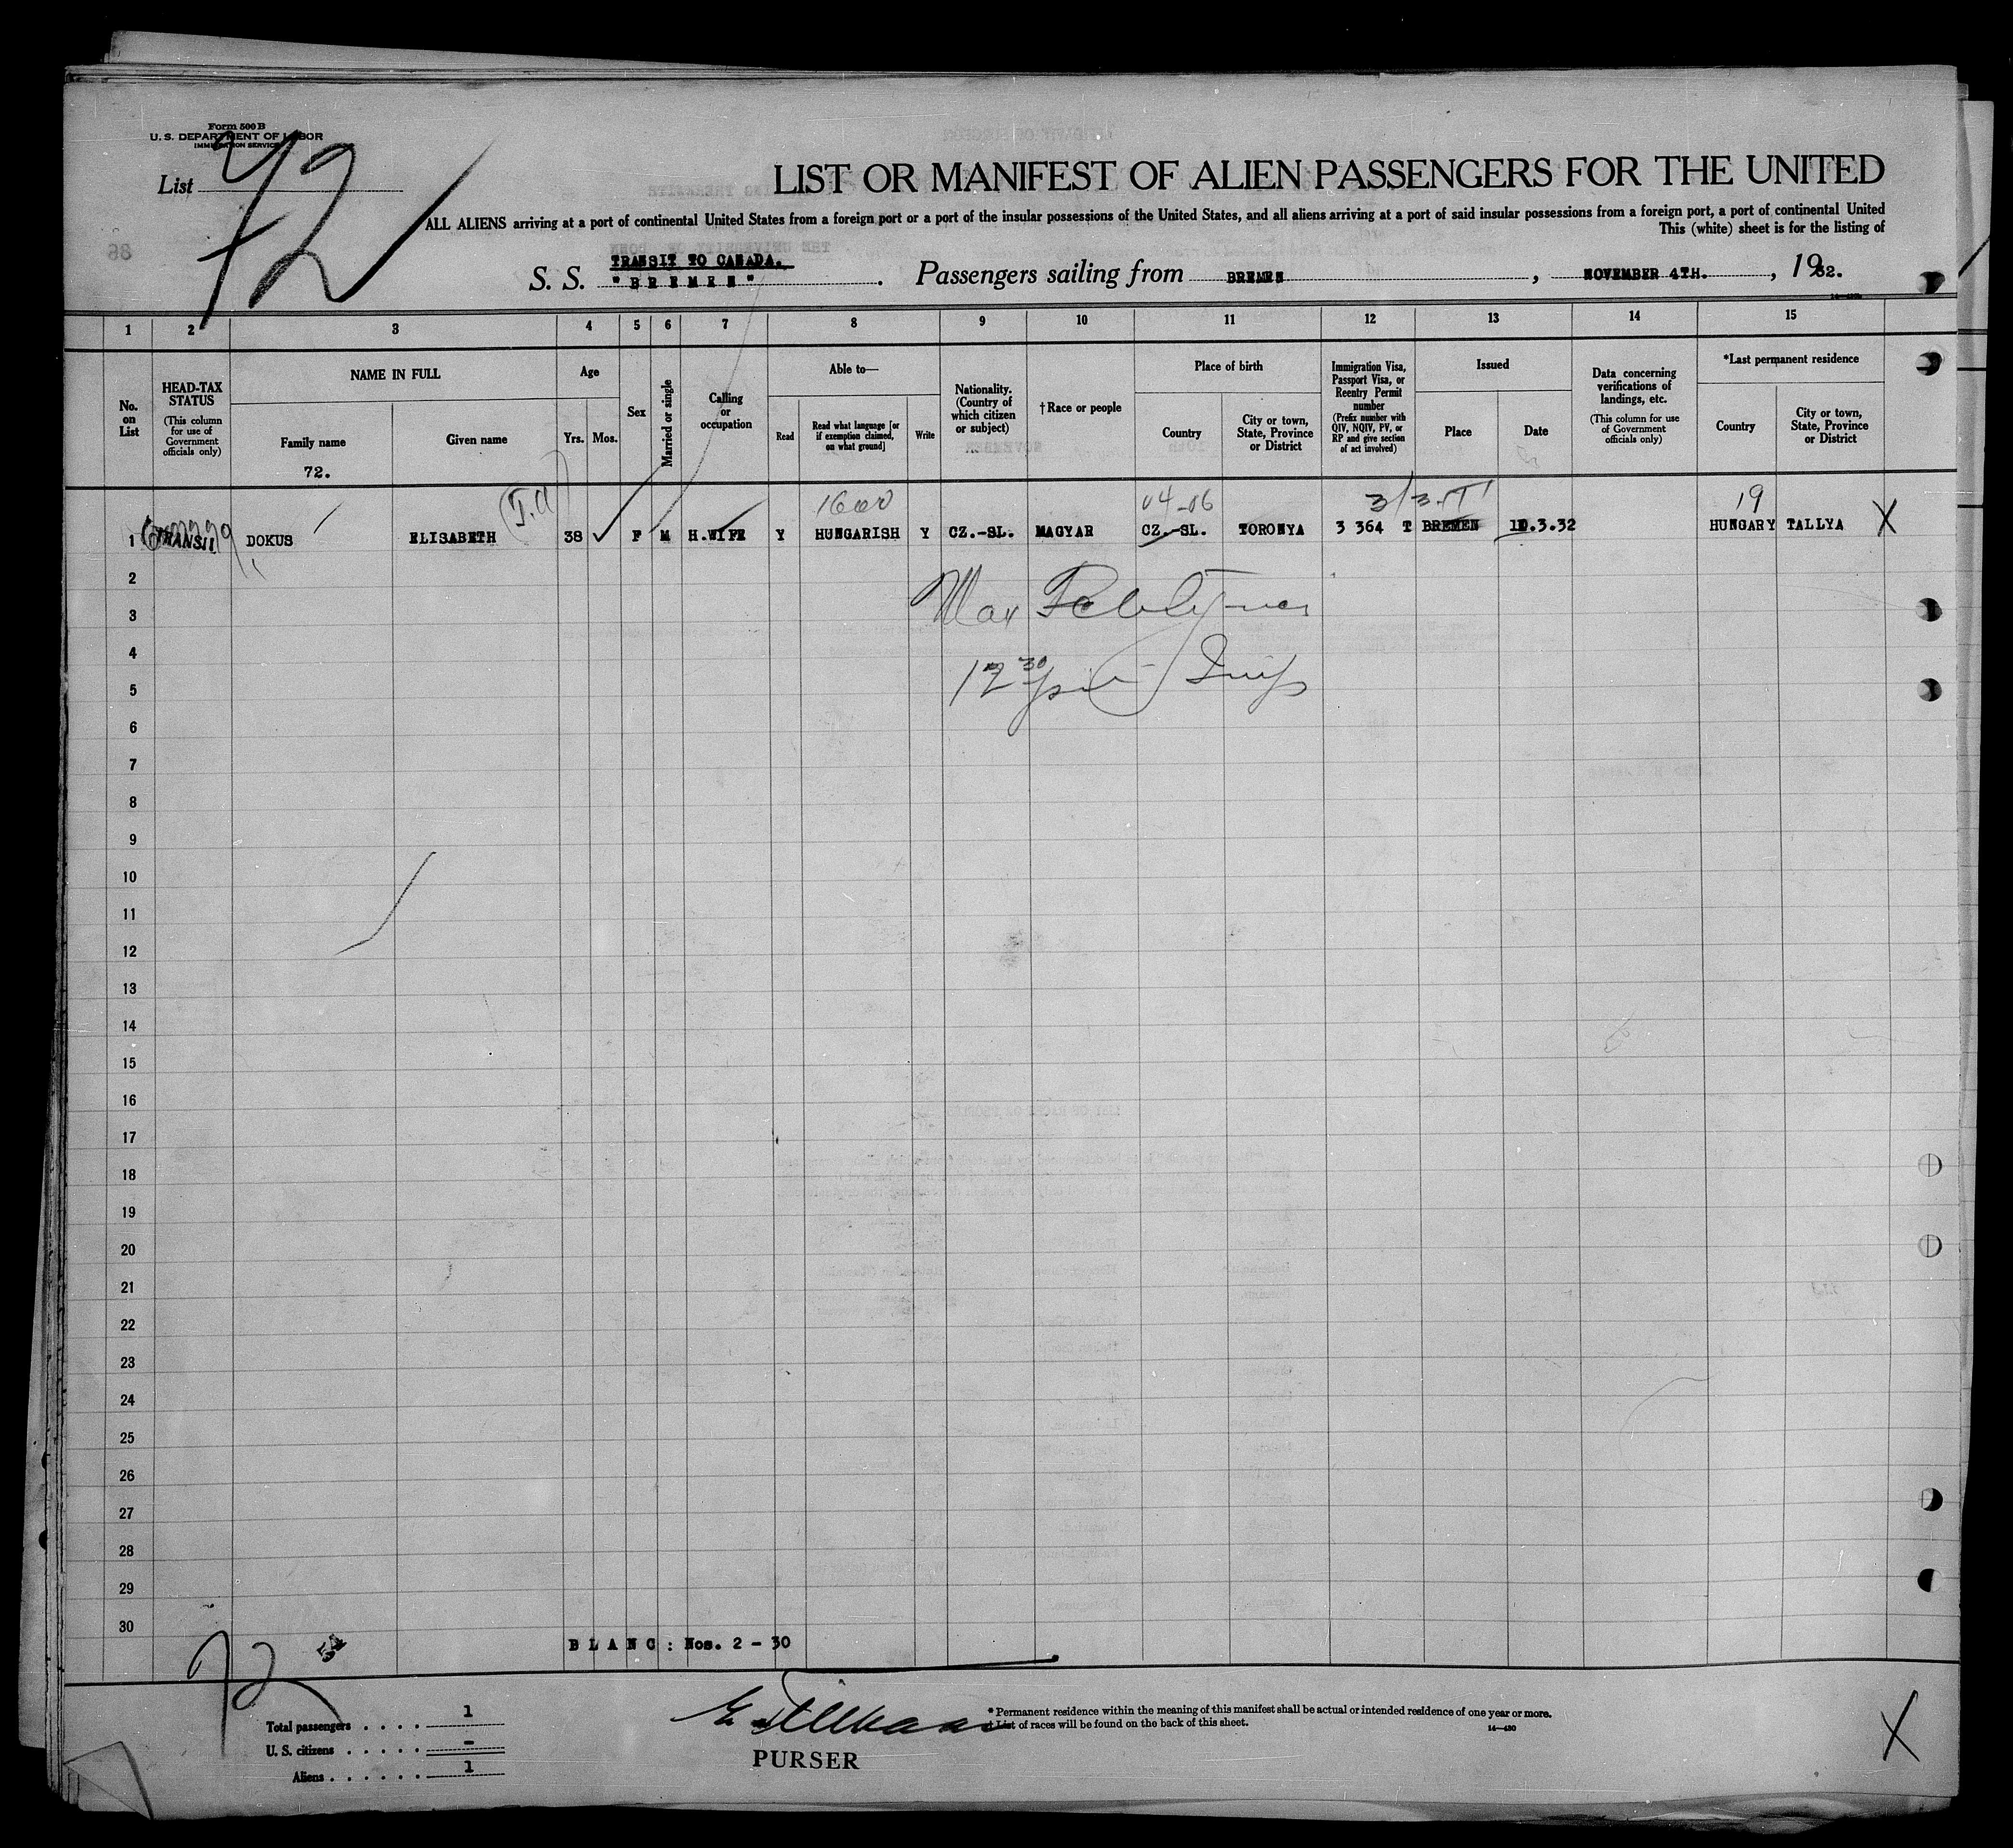 Form 500 B
U. S. DEPARTMENT OF LABOR
IMMIGRATION SERVICE
List 72
LIST OR MANIFEST OF ALIEN PASSENGERS FOR THE UNITED
ALL ALIENS arriving at a port of continental United States from a foreign port or a port of the insular possessions of the United States, and all aliens arriving at a port of said insular possessions from a foreign port, a port of continental United
This (white) sheet is for the listing of
TRANSIT TO CANADA.
S. S. "BREMEN". Passengers sailing from BREMEN, NOVEMBER 4TH., 1932.
1 2 3 4 5 6 7 8 9 10 11 12 13 14 15
No. on List
HEAD-TAX STATUS (This column for use of Government officials only)
NAME IN FULL
Family name
72.
Given name
Age
Yrs. Mos.
Sex
Married or single
Calling or occupation
Able to—
Read
Read what language [or if exemption claimed, on what ground]
Write
Nationality. (Country of which citizen or subject)
†Race or people
Place of birth
Country
City or town, State, Province or District
Immigration Visa, Passport Visa, or Reentry Permit number (Prefix number with QIV, NQIV, PV, or RP and give section of act involved)
Issued
Place
Date
Data concerning verifications of landings, etc. (This column for use of Government officials only)
*Last permanent residence
Country
City or town, State, Province or District
04-06 19
1 TRANSIT DOKUS ELISABETH 38 F M H.WIFE Y HUNGARISH Y CZ.-SL. MAGYAR CZ.-SL. TORONYA 3 364 T BREMEN 10.3.32 HUNGARY TALLYA X
2
3
4
5
6
7
8
9
10
11
12
13
14
15
16
17
18
19
20
21
22
23
24
25
26
27
28
29
30
BLANC: Nos. 2 - 30
72
Total passengers . . . . 1
U. S. citizens . . . . . -
Aliens . . . . . . 1
PURSER
* Permanent residence within the meaning of this manifest shall be actual or intended residence of one year or more.
† List of races will be found on the back of this sheet.
14—430
X